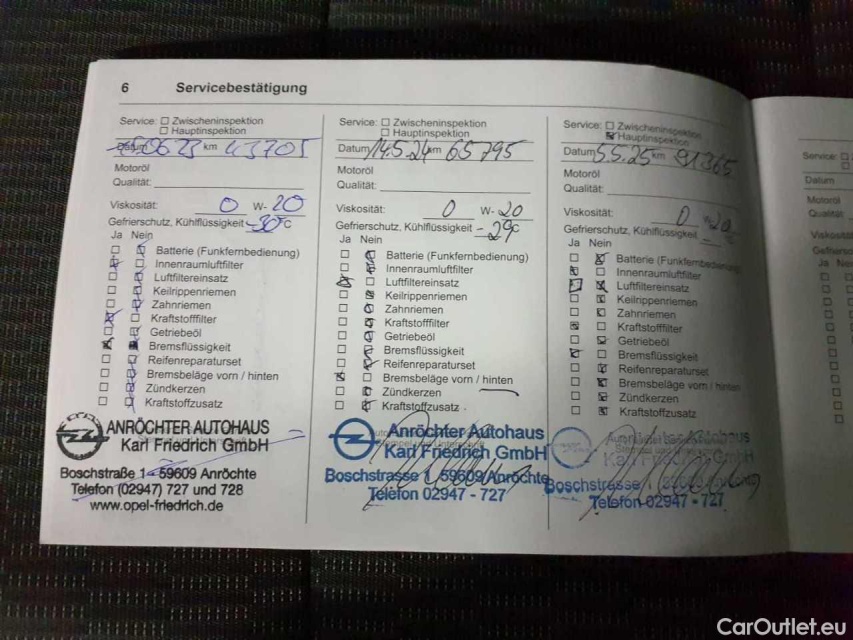 6 Servicebestätigung
Service: Zwischeninspektion
Hauptinspektion
Datum 23 km 43701
Motoröl
Qualität:
Viskosität: 0 W-20
Gefrierschutz, Kühlflüssigkeit -30°C
Ja Nein
Batterie (Funkfernbedienung)
Innenraumluftfilter
Luftfiltereinsatz
Keilrippenriemen
Zahnriemen
Kraftstofffilter
Getriebeöl
Bremsflüssigkeit
Reifenreparaturset
Bremsbeläge vorn / hinten
Zündkerzen
Kraftstoffzusatz
ANRÖCHTER AUTOHAUS
Karl Friedrich GmbH
Boschstraße 1 - 59609 Anröchte
Telefon (02947) 727 und 728
www.opel-friedrich.de
Service: Zwischeninspektion
Hauptinspektion
Datum 14.5.24 km 65795
Motoröl
Qualität:
Viskosität: 0 W-20
Gefrierschutz, Kühlflüssigkeit -29°C
Ja Nein
Batterie (Funkfernbedienung)
Innenraumluftfilter
Luftfiltereinsatz
Keilrippenriemen
Zahnriemen
Kraftstofffilter
Getriebeöl
Bremsflüssigkeit
Reifenreparaturset
Bremsbeläge vorn / hinten
Zündkerzen
Kraftstoffzusatz
Anröchter Autohaus
Karl Friedrich GmbH
Boschstrasse 1, 59609 Anröchte
Telefon 02947 - 727
Service: Zwischeninspektion
Hauptinspektion
Datum 5.5.25 km 91365
Motoröl
Qualität:
Viskosität: 0 -20
Gefrierschutz, Kühlflüssigkeit
Ja Nein
Batterie (Funkfernbedienung)
Innenraumluftfilter
Luftfiltereinsatz
Keilrippenriemen
Zahnriemen
Kraftstofffilter
Getriebeöl
Bremsflüssigkeit
Reifenreparaturset
Bremsbeläge vorn / hinten
Zündkerzen
Kraftstoffzusatz
Autohaus
Karl Friedrich GmbH
Boschstrasse
Telefon 02947 - 727
Service:
Datum
Motoröl
Ja
CarOutlet.eu